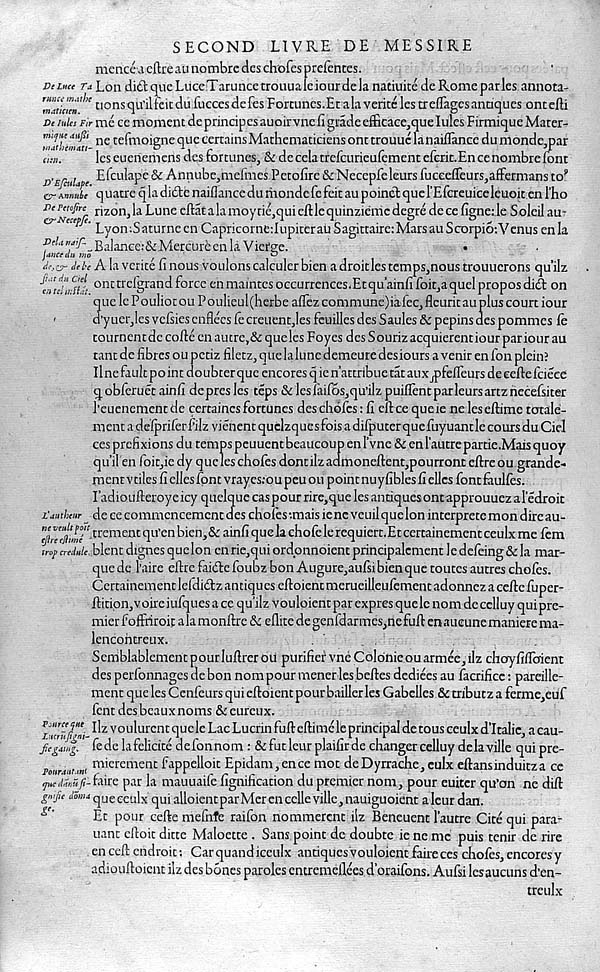 SECOND LIVRE DE MESSIRE
mencé a estre au nombre des choses presentes.
De Luce Ta
runce mathe
maticien.
De Iules Fir
mique aussi
mathemati-
cien.
Lon dict que Luce Tarunce trouua le iour de la natiuité de Rome par les annota-
tions qu'il feit du succes de ses Fortunes. Et a la verité les tressages antiques ont esti
mé ce moment de principes auoir vne si grãde efficace, que Iules Firmique Mater-
ne tesmoigne que certains Mathematiciens ont trouué la naissance du monde, par
les euenemens des fortunes, & de cela trescurieusement escrit. En ce nombre sont
D'Esculape.
& Annube
De Petosire
& Necepse.
Esculape & Annube, mesmes Petosire & Necepse leurs successeurs, affermans to9
quatre q̃ la dicte naissance du monde se feit au poinct que l'Escreuice leuoit en l'ho
rizon, la Lune estãt a la moytié, qui est le quinzieme degré de ce signe: le Soleil au-
Lyon: Saturne en Capricorne: Iupiter au Sagittaire: Mars au Scorpiõ: Venus en la
Dela nais-
sance du mõ
de, & de be
stat du Ciel
en tel instãt.
Balance: & Mercure en la Vierge.
A la verité si nous voulons calculer bien a droit les temps, nous trouuerons qu'ilz
ont tresgrand force en maintes occurrences. Et qu'ainsi soit, a quel propos dict on
que le Pouliot ou Poulieul (herbe assez commune) ia sec, fleurit au plus court iour
d'yuer, les vessies enflées se creuent, les feuilles des Saules & pepins des pommes se
tournent de costé en autre, & que les Foyes des Souriz acquierent iour par iour au
tant de fibres ou petiz filetz, que la lune demeure des iours a venir en son plein?
Il ne fault point doubter que encores q̃ ie n'attribue tãt aux ꝓfesseurs de ceste sciẽce
q obseruẽt ainsi de pres les tẽps & les saisõs, qu'ilz puissent par leurs artz necessiter
l'euenement de certaines fortunes des choses: si est ce que ie ne les estime totale-
ment a despriser s'ilz viẽnent quelzques fois a disputer que suyuant le cours du Ciel
ces prefixions du temps peuuent beaucoup en l'vne & en l'autre partie. Mais quoy
qu'il en soit, ie dy que les choses dont ilz admonestent, pourront estre ou grande-
ment vtiles si elles sont vrayes: ou peu ou point nuysibles si elles sont faulses.
I'adiousteroye icy quelque cas pour rire, que les antiques ont approuuez a l'ẽdroit
L'autheur
ne veult põit
estre estimé
trop credule.
de ce commencement des choses: mais ie ne veuil que lon interprete mon dire au-
trement qu'en bien, & ainsi que la chose le requiert. Et certainement ceulx me sem
blent dignes que lon en rie, qui ordonnoient principalement le deseing & la mar-
que de l'aire estre faicte soubz bon Augure, aussi bien que toutes autres choses.
Certainement lesdictz antiques estoient merueilleusement adonnez a ceste super-
stition, voire iusques a ce qu'ilz vouloient par expres que le nom de celluy qui pre-
mier s'offriroit a la monstre & eslite de gensdarmes, ne fust en aucune maniere ma-
lencontreux.
Semblablement pour lustrer ou purifier vne Colonie ou armée, ilz choysissoient
des personnages de bon nom pour mener les bestes dediées au sacrifice: pareille-
ment que les Censeurs qui estoient pour bailler les Gabelles & tributz a ferme, eus
sent des beaux noms & eureux.
Pource que
Lucrũ signi-
fie gaing.
Ilz voulurent que le Lac Lucrin fust estimé le principal de tous ceulx d'Italie, a cau-
se de la felicité de son nom: & fut leur plaisir de changer celluy de la ville qui pre-
mierement s'appelloit Epidam, en ce mot de Dyrrache, eulx estans induitz a ce
Pourautant
que dãnũ si-
gnifie dõma
ge.
faire par la mauuaise signification du premier nom, pour euiter qu'on ne dist
que ceulx qui alloient par Mer en celle ville, nauiguoient a leur dan.
Et pour ceste mesme raison nommerent ilz Beneuent l'autre Cité qui para-
uant estoit ditte Maloette. Sans point de doubte ie ne me puis tenir de rire
en cest endroit: Car quand iceulx antiques vouloient faire ces choses, encores y
adioustoient ilz des bõnes paroles entremeslées d'oraisons. Aussi les aucuns d'en-
treulx